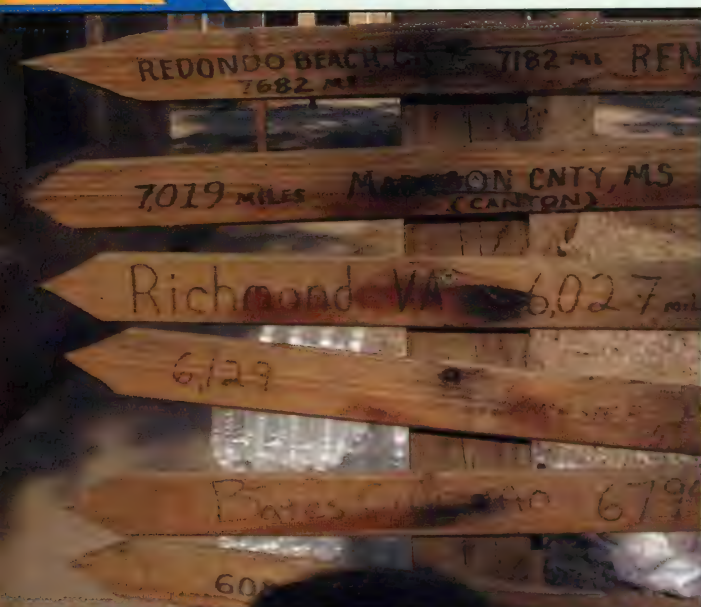 REDONDO BEACH, 7182 MI REN
7682 MI
7,019 MILES MADISON CNTY, MS
(CANTON)
Richmond VA 6,027 MIL
6,129
Bates 679
60